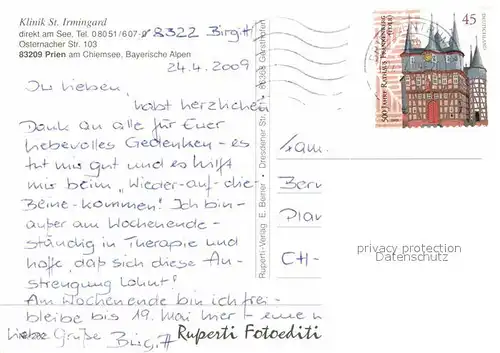 Klinik St. Irmingard
direkt am See. Tel. 08051/607-0 8322 Birgitt
Osternacher Str. 103
83209 Prien am Chiemsee, Bayerische Alpen
24.4.2009
Ihr Lieben,
habt herzlichen
Dank an alle für Euer
liebevolles Gedenken - es
tut mir gut und es hilft
mir beim „Wieder-auf-die-
Beine-kommen! Ich bin -
außer am Wochenende -
ständig in Therapie und
hoffe, daß sich diese An-
strengung lohnt!
Am Wochenende bin ich frei -
bleibe bis 19. Mai hier - eine
liebe Grüße Birgitt
Ruperti-Verlag E. Berner • Dresdener Str. • 86368 Gersthofen
Ruperti Fotoediti
500 Jahre Rathaus Frankenberg
(Eder)
45
DEUTSCHLAND
Fam.
Bern
Plan
CH-
privacy protection
Datenschutz